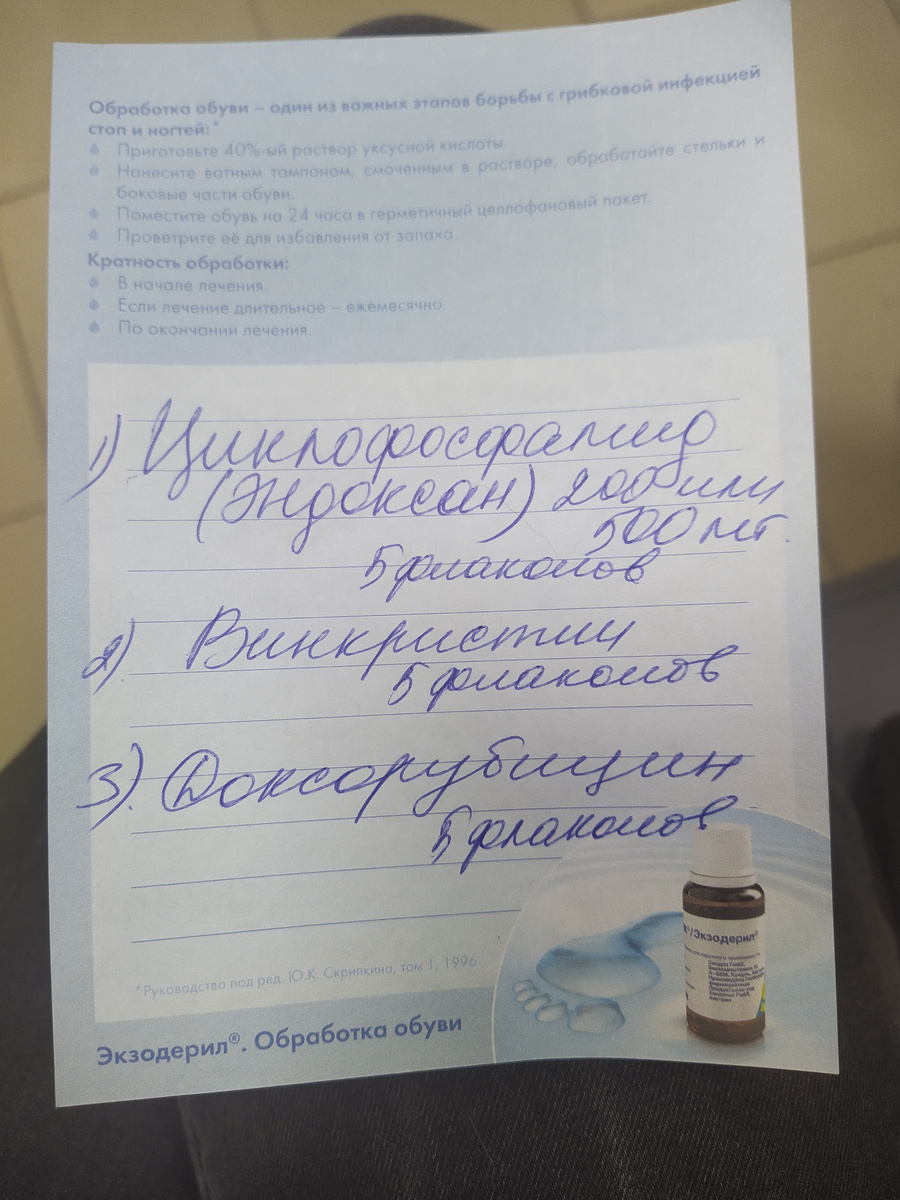 Обработка обуви – один из важных этапов борьбы с грибковой инфекцией
стоп и ногтей:*
Приготовьте 40%-ый раствор уксусной кислоты.
Нанесите ватным тампоном, смоченным в растворе, обработайте стельки и
боковые части обуви.
Поместите обувь на 24 часа в герметичный целлофановый пакет.
Проветрите её для избавления от запаха.
Кратность обработки:
В начале лечения.
Если лечение длительное – ежемесячно.
По окончании лечения.
1) Циклофосфамид
(Эндоксан) 200 или
500 мг.
5 флаконов
2) Винкристин
5 флаконов
3). Доксорубицин
5 флаконов
/Экзодерил®
*Руководство под ред. Ю.К. Скрипкина, том 1, 1996
Экзодерил®. Обработка обуви